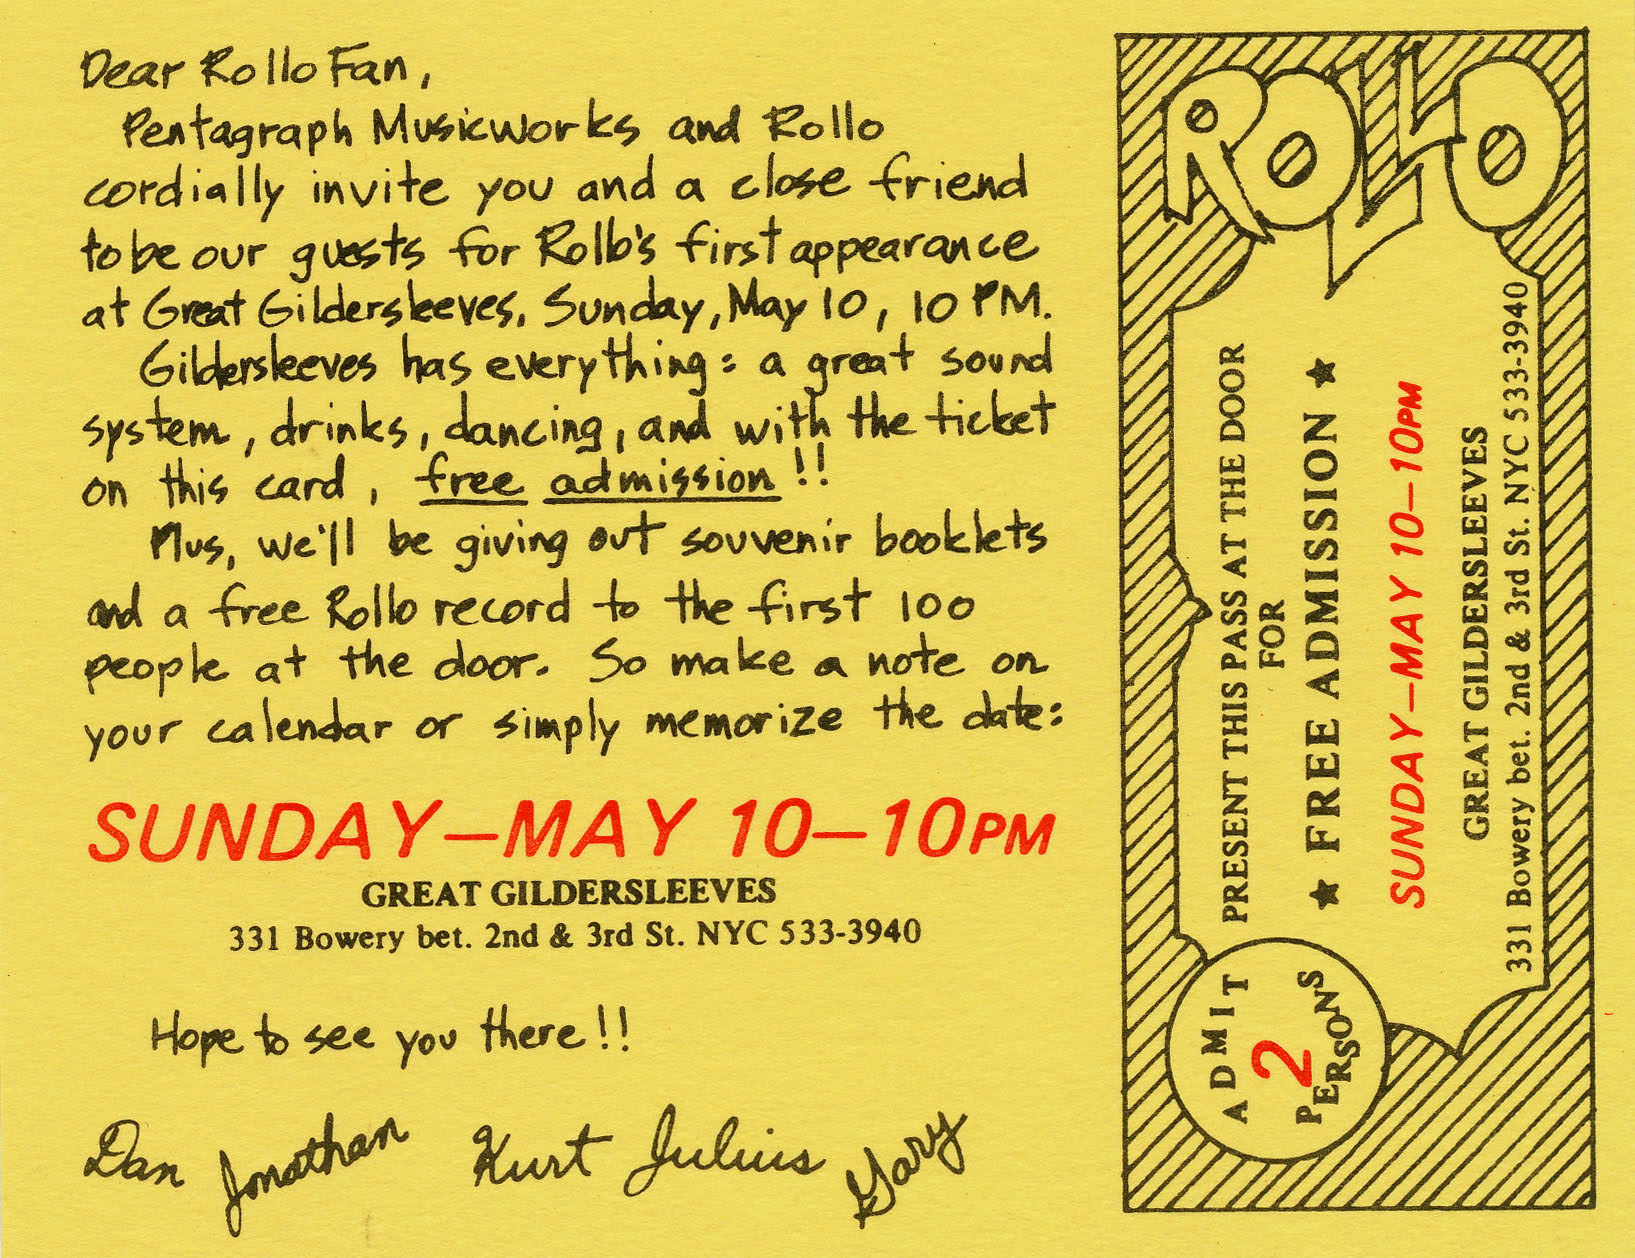 Dear Rollo Fan,
Pentagraph Musicworks and Rollo
cordially invite you and a close friend
to be our guests for Rollo's first appearance
at Great Gildersleeves, Sunday, May 10, 10 PM.
Gildersleeves has everything: a great sound
system, drinks, dancing, and with the ticket
on this card, free admission!!
Plus, we'll be giving out souvenir booklets
and a free Rollo record to the first 100
people at the door. So make a note on
your calendar or simply memorize the date:
SUNDAY—MAY 10—10PM
GREAT GILDERSLEEVES
331 Bowery bet. 2nd & 3rd St. NYC 533-3940
Hope to see you there!!
Dan Jonathan Kurt Julius Gary
ROLLO
PRESENT THIS PASS AT THE DOOR
FOR
★ FREE ADMISSION ★
SUNDAY—MAY 10—10PM
GREAT GILDERSLEEVES
331 Bowery bet. 2nd & 3rd St. NYC 533-3940
ADMIT
2
PERSONS